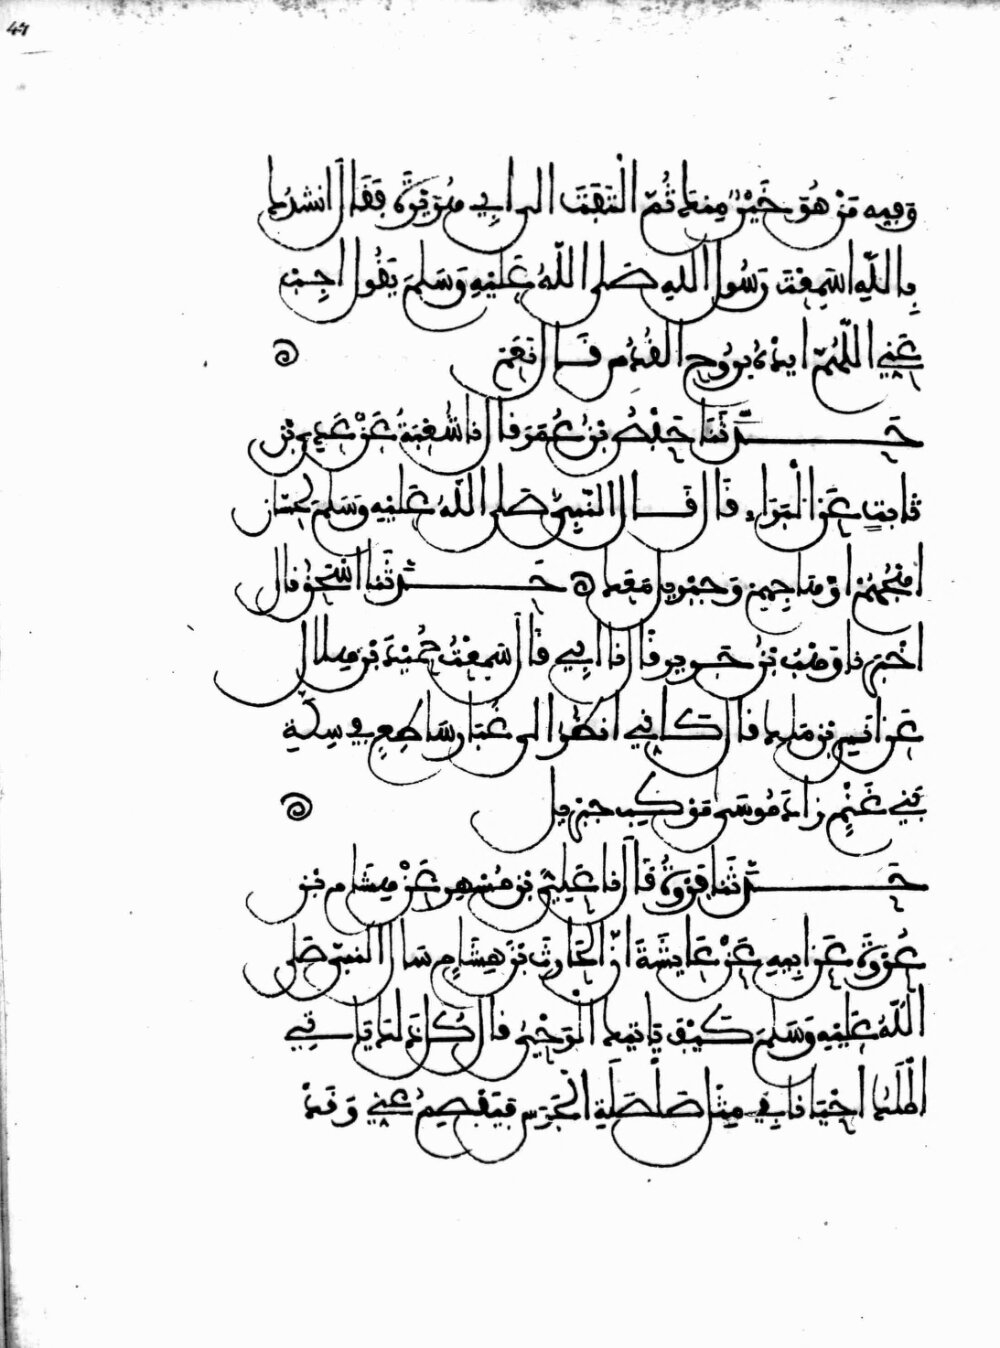 47
وفيه من هو خير منك ثم التفت الى ابي هريرة فقال انشدك
بالله اسمعت رسول الله صلى الله عليه وسلم يقول اجب
عني اللهم ايده بروح القدس قال نعم
حدثنا حفص بن عمر قال نا شعبة عن عدي بن
ثابت عن البراء قال قال النبي صلى الله عليه وسلم لحسان
اهجهم او هاجهم وجبريل معك حدثنا اسحق قال
اخبرنا وهب بن جرير قال نا ابي قال سمعت حميد بن هلال
عن انس بن ملك قال كاني انظر الى غبار ساطع في سكة
بني غنم زاد موسى موكب جبريل
حدثنا فروة قال نا علي بن مسهر عن هشام بن
عروة عن ابيه عن عايشة ان الحارث بن هشام سال النبي صلى
الله عليه وسلم كيف ياتيك الوحي قال كل ذلك ياتيني
الملك احيانا في مثل صلصلة الجرس فيفصم عني وقد